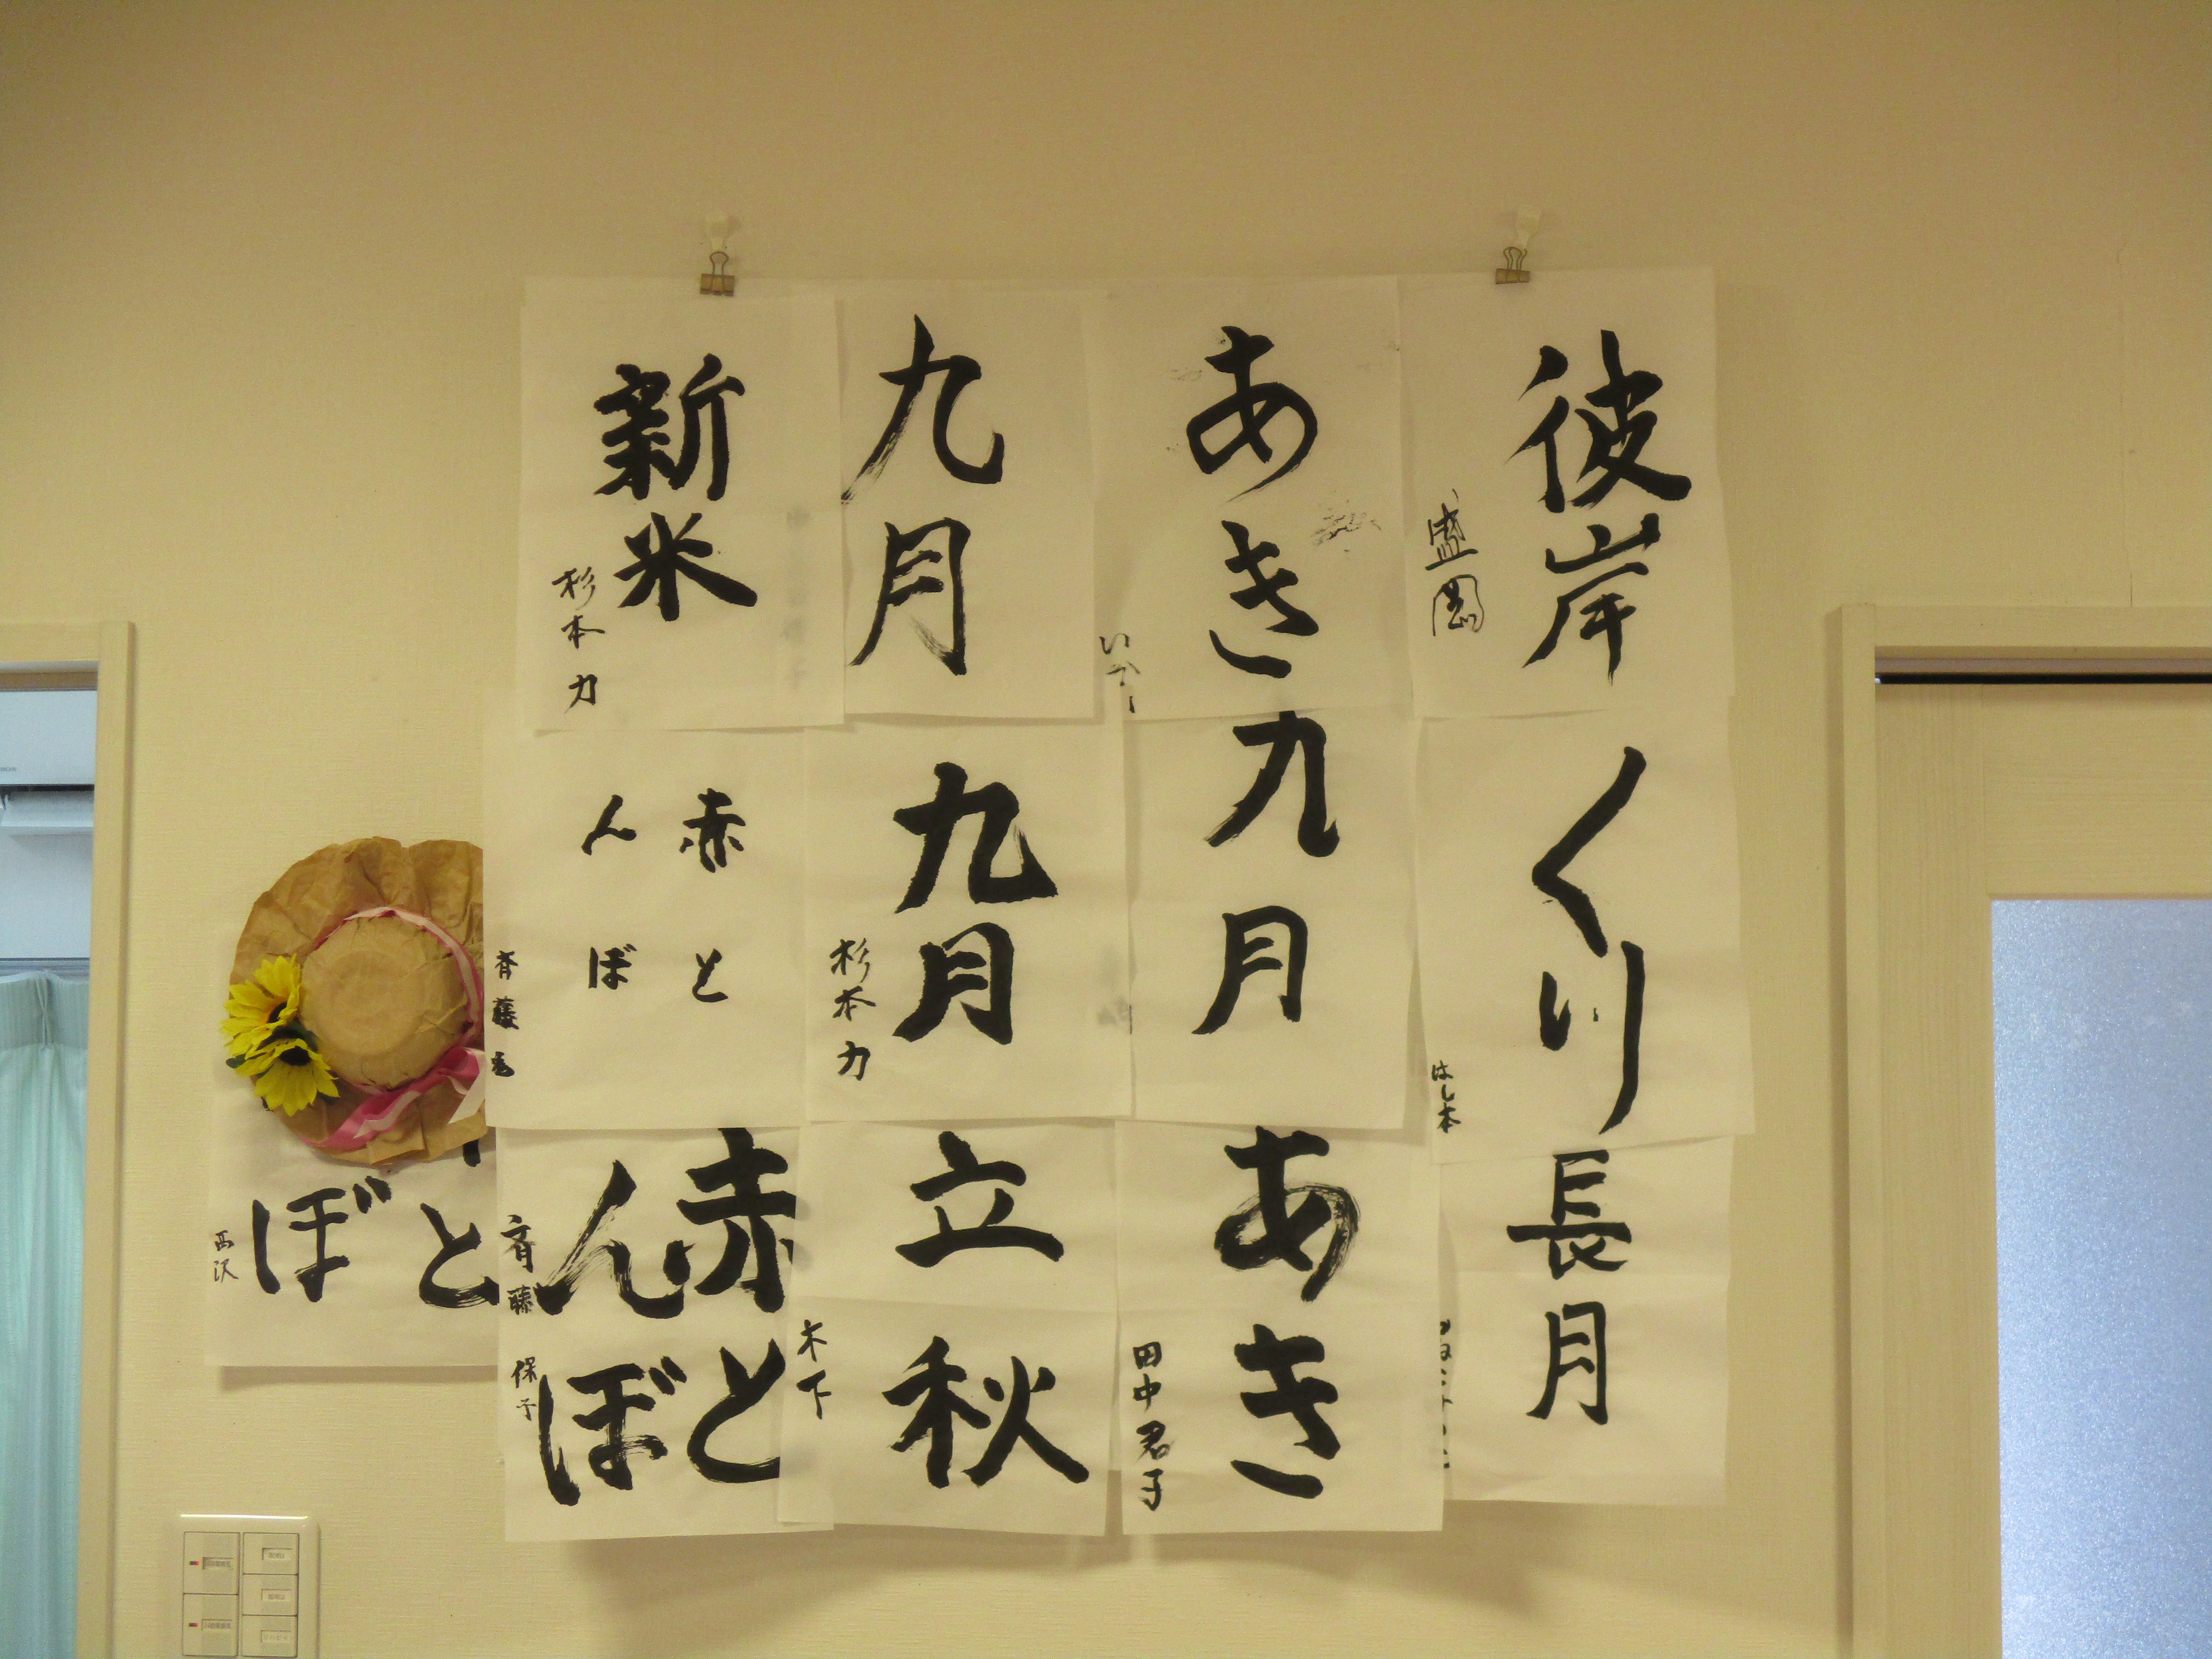 彼岸
盛岡
あき
九月
新米
杉本力
くり
はし本
九月
九月
杉本力
赤と
んぼ
斉藤
長月
あき
田中君子
立秋
木下
赤と
んぼ
斉藤保子
と
ぼ
西沢